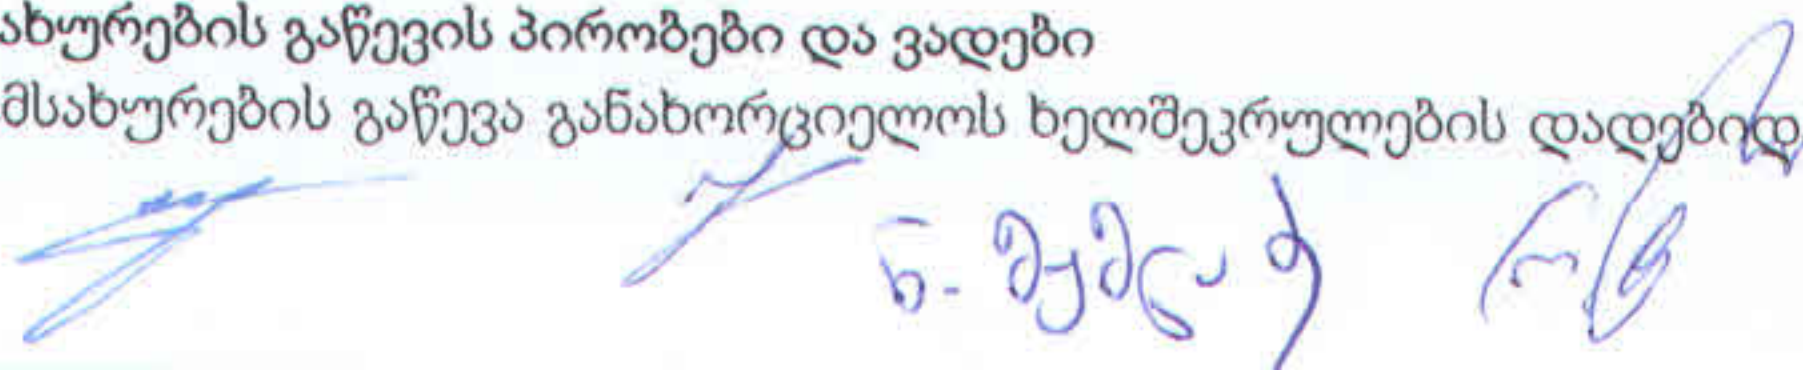 ახურების გაწევის პირობები და ვადები
მსახურების გაწევა განახორციელოს ხელშეკრულების დადებიდ